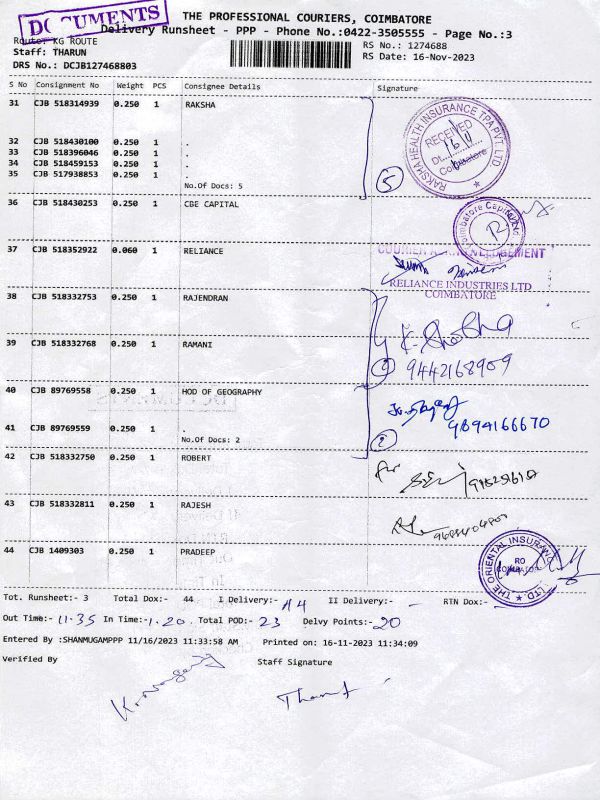 DOCUMENTS
THE PROFESSIONAL COURIERS, COIMBATORE
Delivery Runsheet - PPP - Phone No.:0422-3505555 - Page No.:3
Route: KG ROUTE
RS No.: 1274688
Staff: THARUN
RS Date: 16-Nov-2023
DRS No.: DCJB127468803
S No Consignment No Weight PCS Consignee Details Signature
31 CJB 518314939 0.250 1 RAKSHA
RAKSHA HEALTH INSURANCE TPA PVT. LTD
RECEIVED
Dt. 16/11
Coimbatore
32 CJB 518430100 0.250 1 .
33 CJB 518396046 0.250 1 .
34 CJB 518459153 0.250 1 .
35 CJB 517938853 0.250 1 .
No.Of Docs: 5
5
36 CJB 518430253 0.250 1 CBE CAPITAL
Coimbatore Capital
37 CJB 518352922 0.060 1 RELIANCE
COURIER ACKNOWLEDGEMENT
RELIANCE INDUSTRIES LTD
COIMBATORE
38 CJB 518332753 0.250 1 RAJENDRAN
39 CJB 518332768 0.250 1 RAMANI
9442168909
40 CJB 89769558 0.250 1 HOD OF GEOGRAPHY
9894166670
41 CJB 89769559 0.250 1 .
No.Of Docs: 2
2
42 CJB 518332750 0.250 1 ROBERT
for
43 CJB 518332811 0.250 1 RAJESH
44 CJB 1409303 0.250 1 PRADEEP
THE ORIENTAL INSURANCE
LTD
RO
Tot. Runsheet:- 3 Total Dox:- 44 I Delivery:- 44 II Delivery:- - RTN Dox:- -
Out Time:- 11.35 In Time:- 1.20 Total POD:- 23 Delvy Points:- 20
Entered By :SHANMUGAMPPP 11/16/2023 11:33:58 AM Printed on: 16-11-2023 11:34:09
Verified By Staff Signature